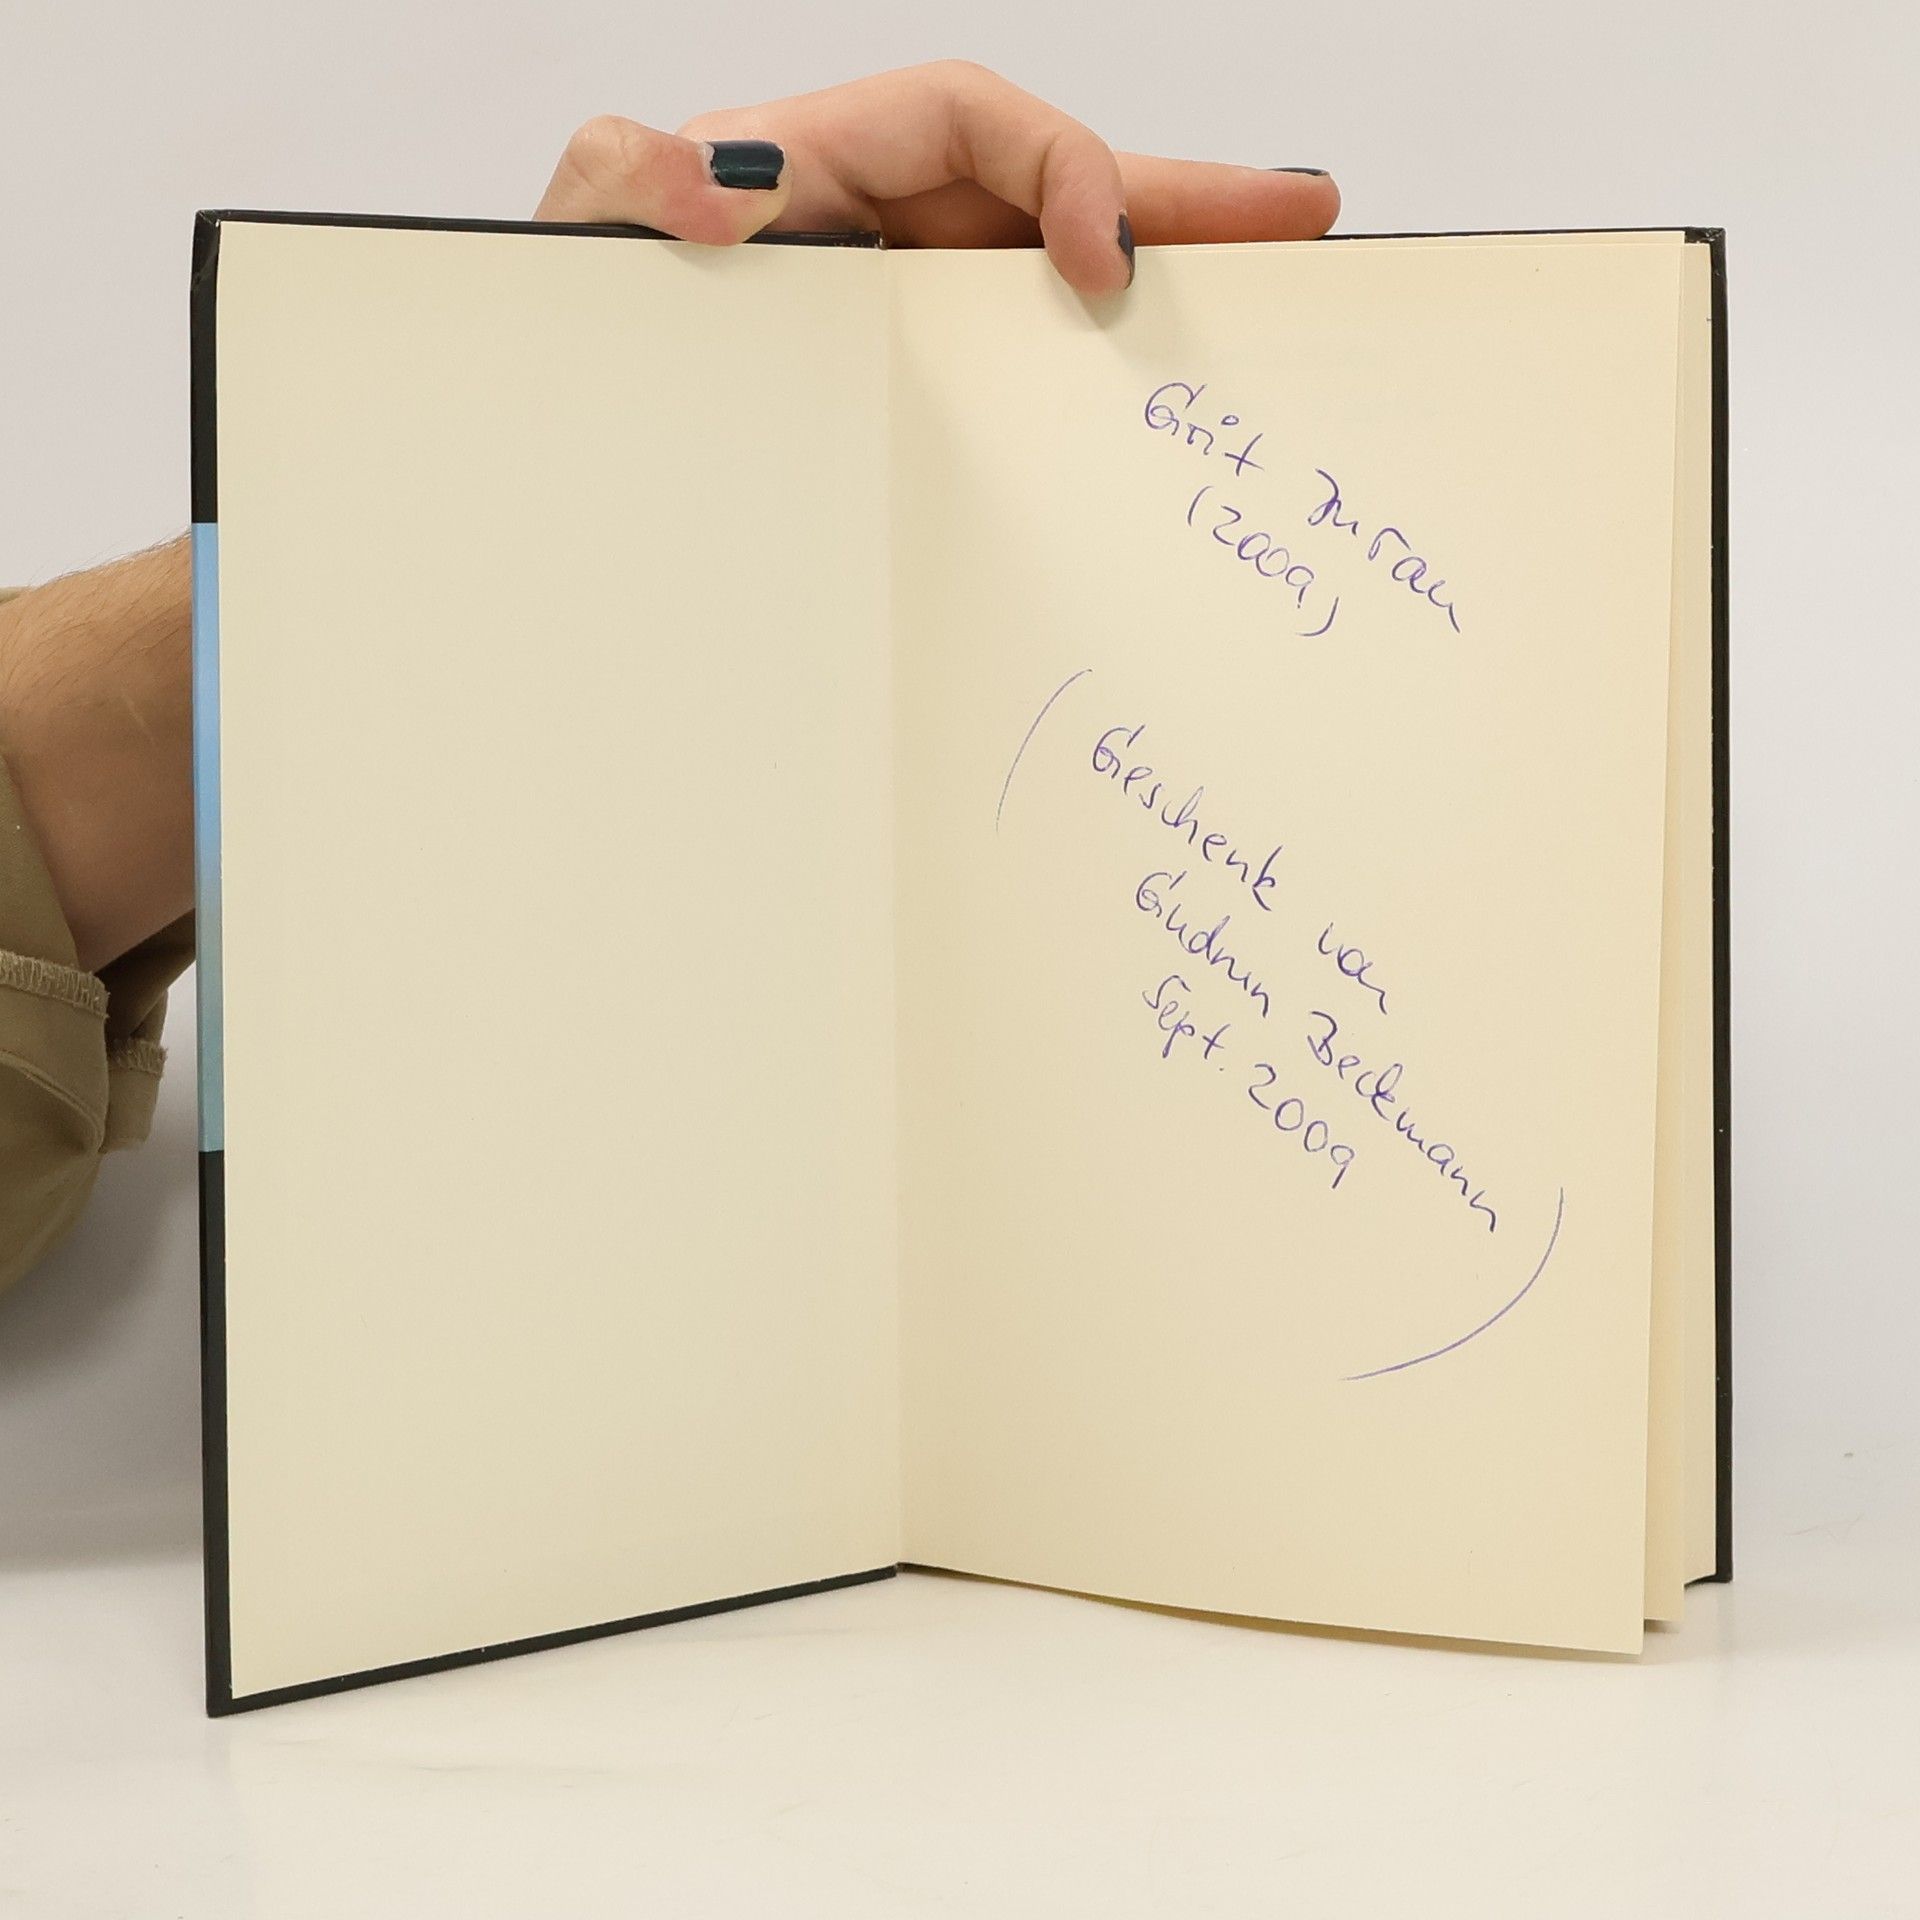 Grit Juran
(2009)
(Geschenk von
Gudrun Beckmann
Sept. 2009)